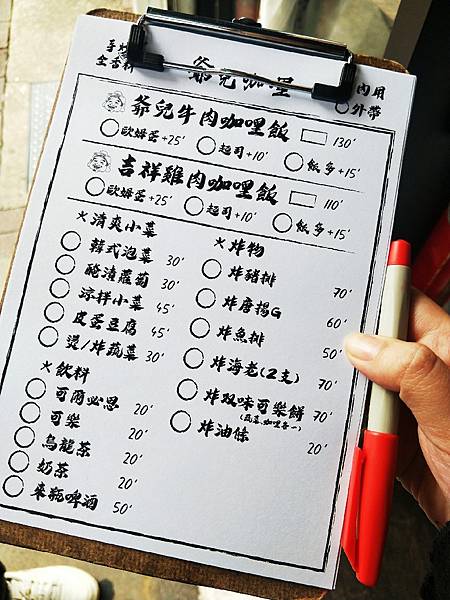 手炒
全香料
爺兒咖哩
內用
外帶
爺兒牛肉咖哩飯 130'
歐姆蛋+25' 起司+10' 飯多+15'
吉祥雞肉咖哩飯 110'
歐姆蛋+25' 起司+10' 飯多+15'
×清爽小菜
韓式泡菜 30'
醃漬蘿蔔 30'
涼拌小菜 45'
皮蛋豆腐 45'
燙/炸蔬菜 30'
×飲料
可爾必思 20'
可樂 20'
烏龍茶 20'
奶茶 20'
來瓶啤酒 50'
×炸物
炸豬排 70'
炸唐揚G 60'
炸魚排 50'
炸海老(2支) 70'
炸双味可樂餅 70'
咖哩各一)
炸油條 20'